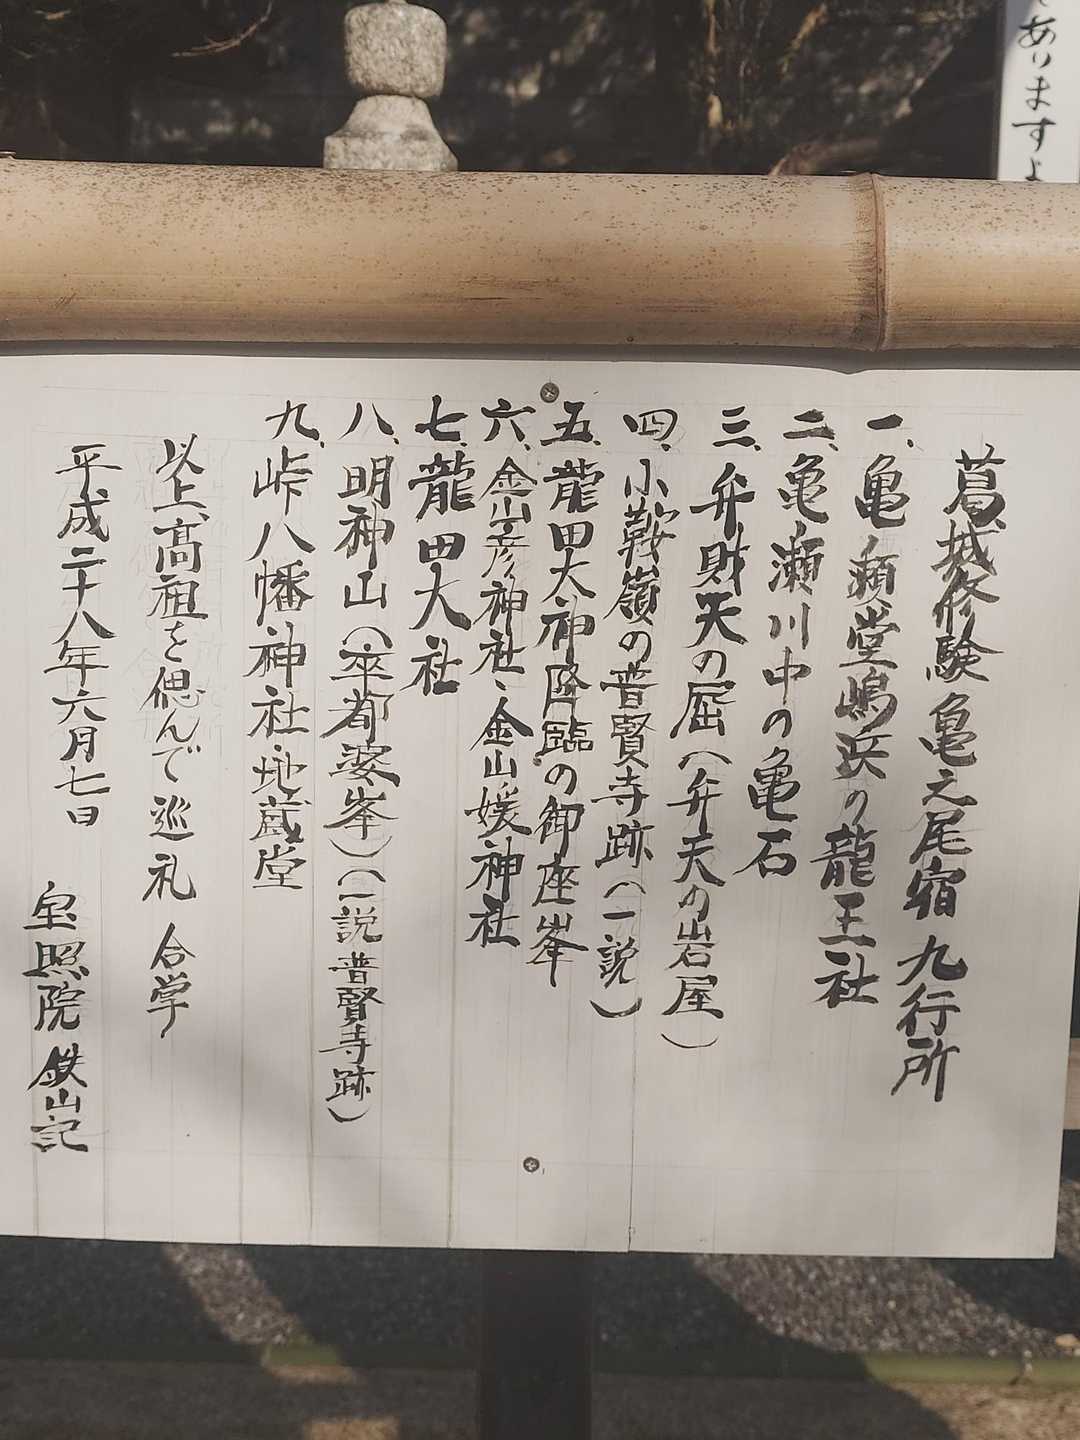 でありますよ
葛城修験 亀之尾宿 九行所
一、亀ノ瀬堂嶋浜の龍王社
二、亀ノ瀬川中の亀石
三、弁財天の屈（弁天の岩屋）
四、小鞍嶺の普賢寺跡（一説）
五、龍田大神降臨の御座峯
六、金山彦神社、金山媛神社
七、龍田大社
八、明神山（卒都婆峯）（一説普賢寺跡）
九、峠八幡神社・地蔵堂
以上、高祖を偲んで巡礼 合掌
平成二十八年六月七日
宝照院 鉄山記